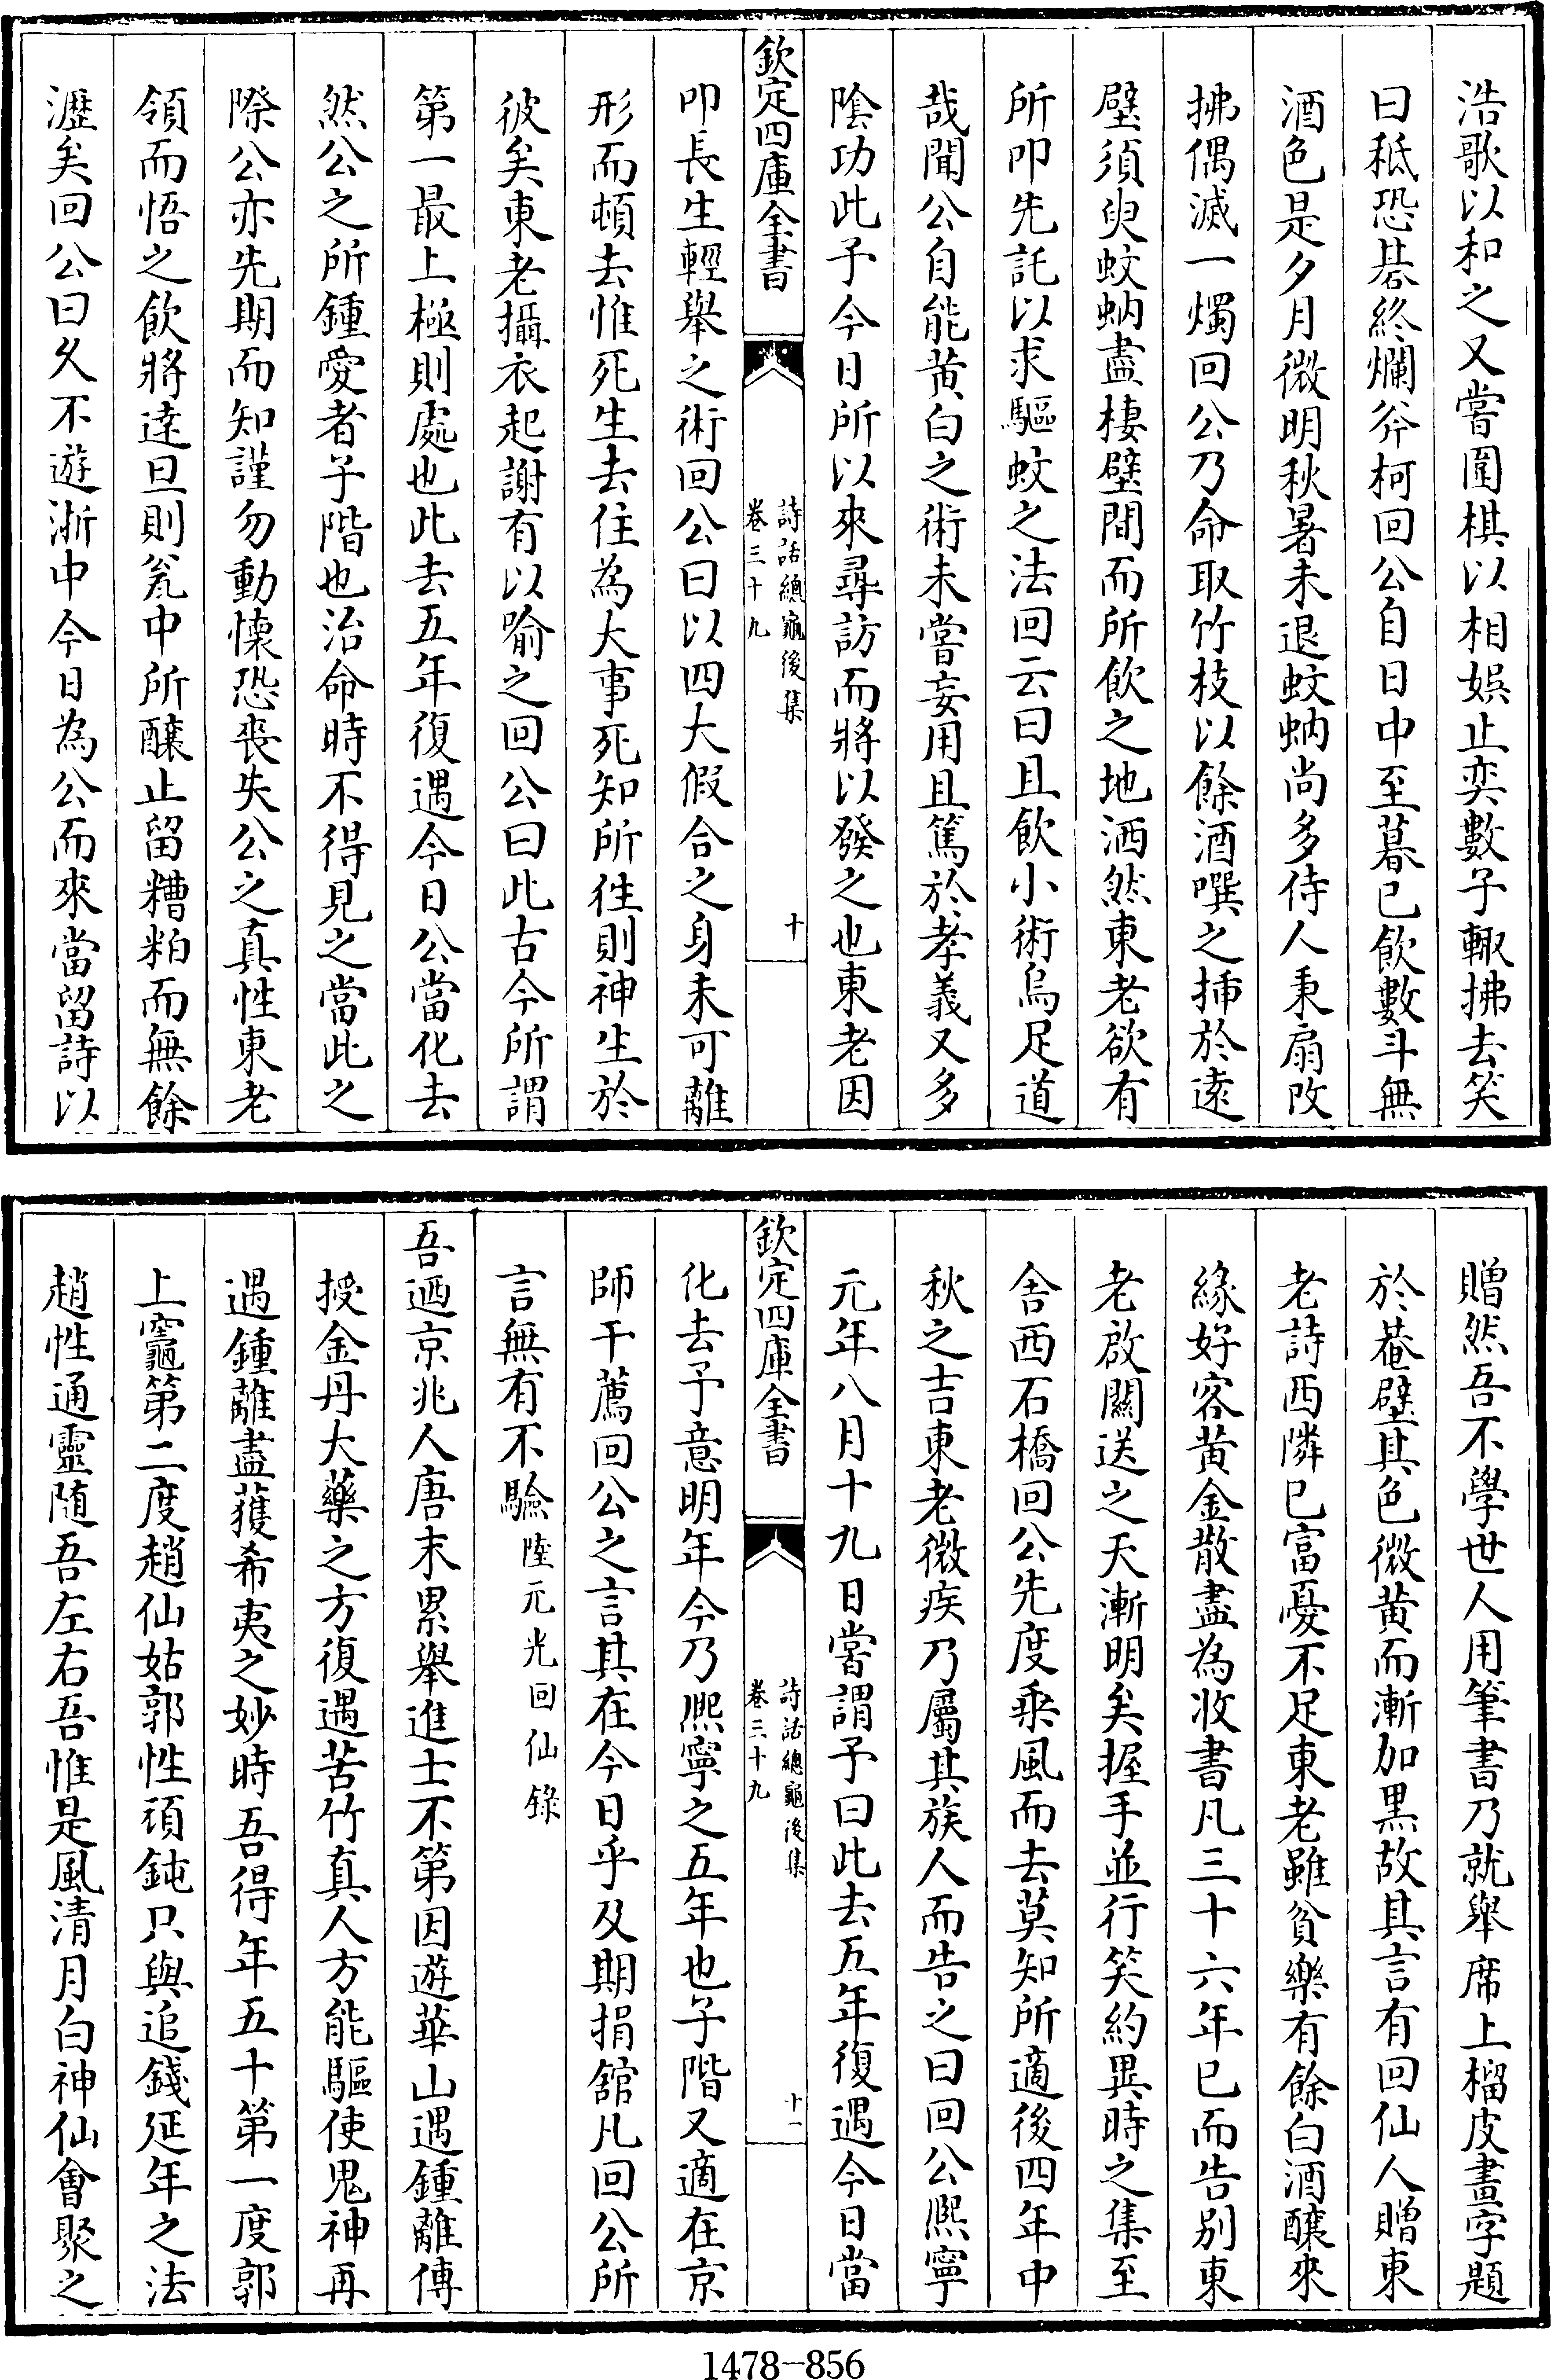 浩歌以和之又嘗圍棋以相娯止奕數子輙拂去笑
曰秪恐棊終爛斧柯回公自日中至暮已飲數斗無
酒色是夕月微明秋暑未退蚊蚋尚多侍人秉扇敺
拂偶滅一燭回公乃命取竹枝以餘酒噀之揷於遠
壁須臾蚊蚋盡棲壁間而所飲之地洒然東老欲有
所叩先託以求驅蚊之法回云曰且飲小術烏足道
哉聞公自能黄白之術未嘗妄用且篤於孝義又多
陰功此予今日所以來尋訪而將以發之也東老因
欽定四庫全書
詩話總龜後集
卷三十九
十
叩長生輕舉之術回公曰以四大假合之身未可離
形而頓去惟死生去住為大事死知所徃則神生於
彼矣東老攝衣起謝有以喻之回公曰此古今所謂
第一最上極則處也此去五年復遇今日公當化去
然公之所鍾愛者子階也治命時不得見之當此之
際公亦先期而知謹勿動懷恐喪失公之真性東老
領而悟之飲將逹旦則瓮中所釀止留糟粕而無餘
瀝矣回公曰久不遊浙中今日為公而來當留詩以
贈然吾不學世人用筆書乃就舉席上榴皮畫字題
於菴壁其色微黄而漸加黒故其言有回仙人贈東
老詩西隣已富憂不足東老雖貧樂有餘白酒釀來
緣好客黄金散盡為收書凡三十六年已而告别東
老啟關送之天漸明矣握手並行笑約異時之集至
舍西石橋回公先度乘風而去莫知所適後四年中
秋之吉東老微疾乃屬其族人而告之曰回公熈寧
元年八月十九日嘗謂予曰此去五年復遇今日當
欽定四庫全書
詩話總龜後集
卷三十九
十一
化去予意明年今乃熈寧之五年也子階又適在京
師干薦回公之言其在今日乎及期捐舘凡回公所
言無有不驗陸元光回仙錄
吾迺京兆人唐末累舉進士不第因遊華山遇鍾離傳
授金丹大藥之方復遇苦竹真人方能驅使鬼神再
遇鍾離盡獲希夷之妙時吾得年五十第一度郭
上竈第二度趙仙姑郭性頑鈍只與追錢延年之法
趙性通靈随吾左右吾惟是風清月白神仙會聚之
1478—856